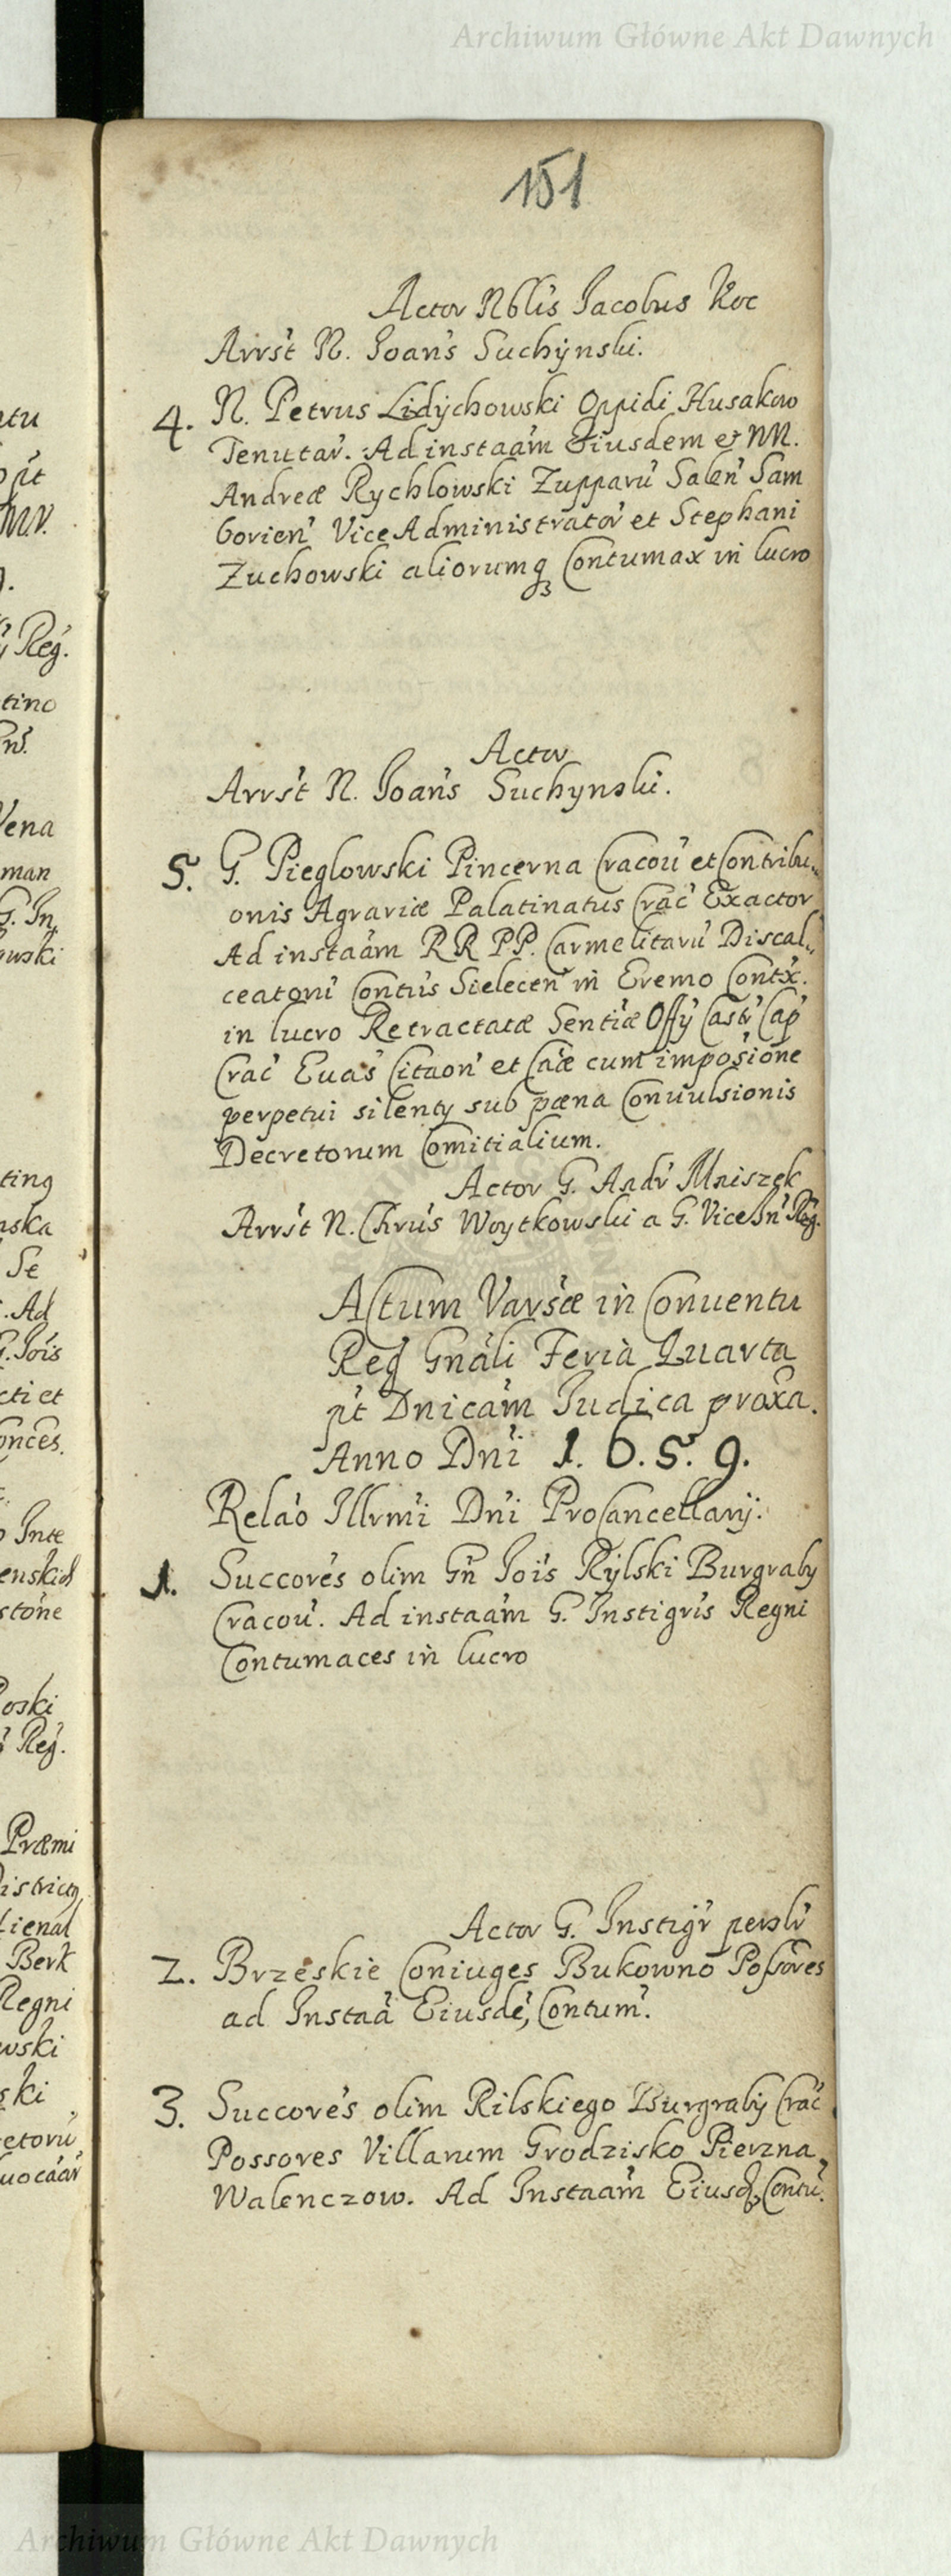 Archiwum Główne Akt Dawnych
151
Actor Nblis Jacobus Koc
Arrst N. Joans Suchynski.
4. N. Petrus Lidychowski Oppidi Husakow
Tenutar. Ad instaam Eiusdem et NN.
Andreæ Rychlowski Zupparu Salen Sam
borien ViceAdministrator et Stephani
Zuchowski aliorumq Contumax in lucro
Actor
Arrst N. Joans Suchynski.
5. G. Pieglowski Pincerna Cracou et Contribu
onis Agrariæ Palatinatus Crac Exactor
Ad instaam RR PP. Carmelitaru Discal
ceatoru Contus Sielecen in Eremo Contx.
in lucro Retractatæ Sentiæ Offy Castr Cap
Crac Euas Citaon et Caæ cum imposione
perpetui silenty sub pæna Conuulsionis
Decretorum Comitialium.
Actor G. Andr Mniszek
Arrst N. Chrus Woytkowski a G. ViceIn Reg.
Actum Varsæ in Conuentu
Reg Gnali Feria Quarta
pt Dnicam Judica proxa.
Anno Dni 1.6.5.9.
Relao Illrmi Dni ProCancellarij.
1. Succores olim Gn Jois Rylski Burgraby
Cracou. Ad instaam G. Instigris Regni
Contumaces in lucro
Actor G. Instigr perslr
2. Brzeskie Coniuges Bukowno Possores
ad Instaa Eiusde, Contum.
3. Succores olim Rilskiego Burgraby Crac
Possores Villarum Grodzisko Pierzna
Walenczow. Ad Instaam Eiusd, Contu.
Archiwum Główne Akt Dawnych